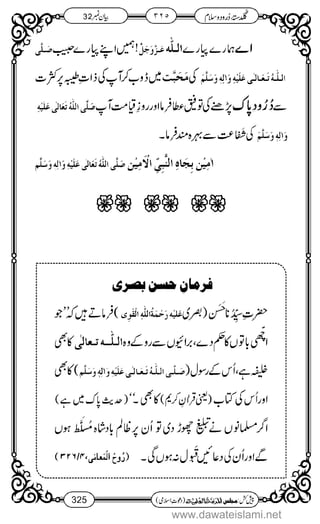 گلدستۂ دُرود و سلام ٣٢٥ بیان نمبر 32
اے ہمارے پیارے اللّٰہ عَزَّوَجَلَّ! ہمیں اپنے پیارے حبیب صَلَّی
اللّٰہُ تَعَالٰی عَلَیْہِ وَاٰلِہٖ وَسَلَّمَ کی مَحَبَّت میں ڈوب کر آپ کی ذاتِ طیبہ پر کثرت
سے دُرُودِ پاک پڑھنے کی توفیق عطا فرما اور روزِ قیامت آپ صَلَّی اللّٰہُ تَعَالٰی عَلَیْہِ
وَاٰلِہٖ وَسَلَّمَ کی شفاعت سے بہرہ مند فرما۔
اٰمِیْن بِجَاہِ النَّبِیِّ الْاَمِیْن صَلَّی اللّٰہُ تَعَالٰی عَلَیْہِ وَاٰلِہٖ وَسَلَّمَ
فرمانِ حسن بصری
حضرتِ سیِّدُنا حَسَن (بصری عَلَیْہِ رَحْمَۃُ اللّٰہِ الْقَوِی) فرماتے ہیں کہ ”جو
اچھی باتوں کا حکم دے، برائیوں سے روکے وہ اللّٰہ تعالٰی کا بھی
خلیفہ ہے، اُس کے رسول (صَلَّی اللّٰہُ تَعَالٰی عَلَیْہِ وَاٰلِہٖ وَسَلَّمَ) کا بھی
اور اُس کی کتاب (یعنی قراٰنِ کریم) کا بھی۔“ (حدیثِ پاک میں ہے)
اگر مسلمانوں نے تبلیغ چھوڑ دی تو اُن پر ظالم بادشاہ مُسلَّط ہوں
گے اور اُن کی دعائیں قبول نہ ہوں گی۔ (رُوحُ الْمَعانی، ٤/٣٢٦)
325 پیش کش: مجلس المدینۃ العلمیۃ (دعوتِ اسلامی)
www.dawateislami.net